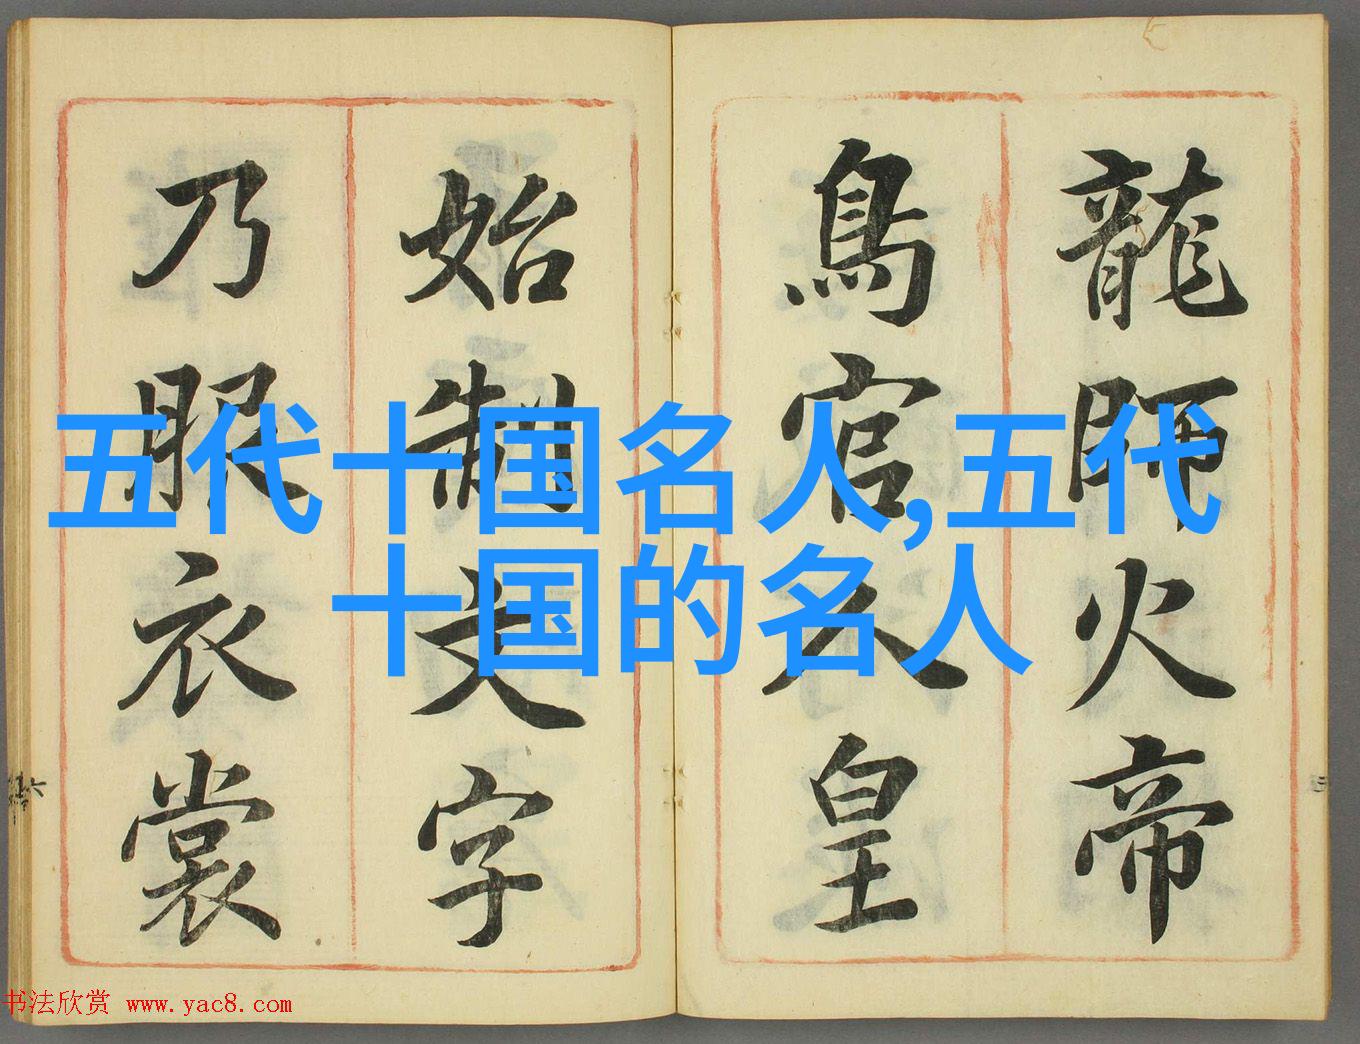 龍師火帝
鳥官人皇
始制文字
乃服衣裳
五代十国名人,五代
十国的名人
书法欣赏 www.yac8.com